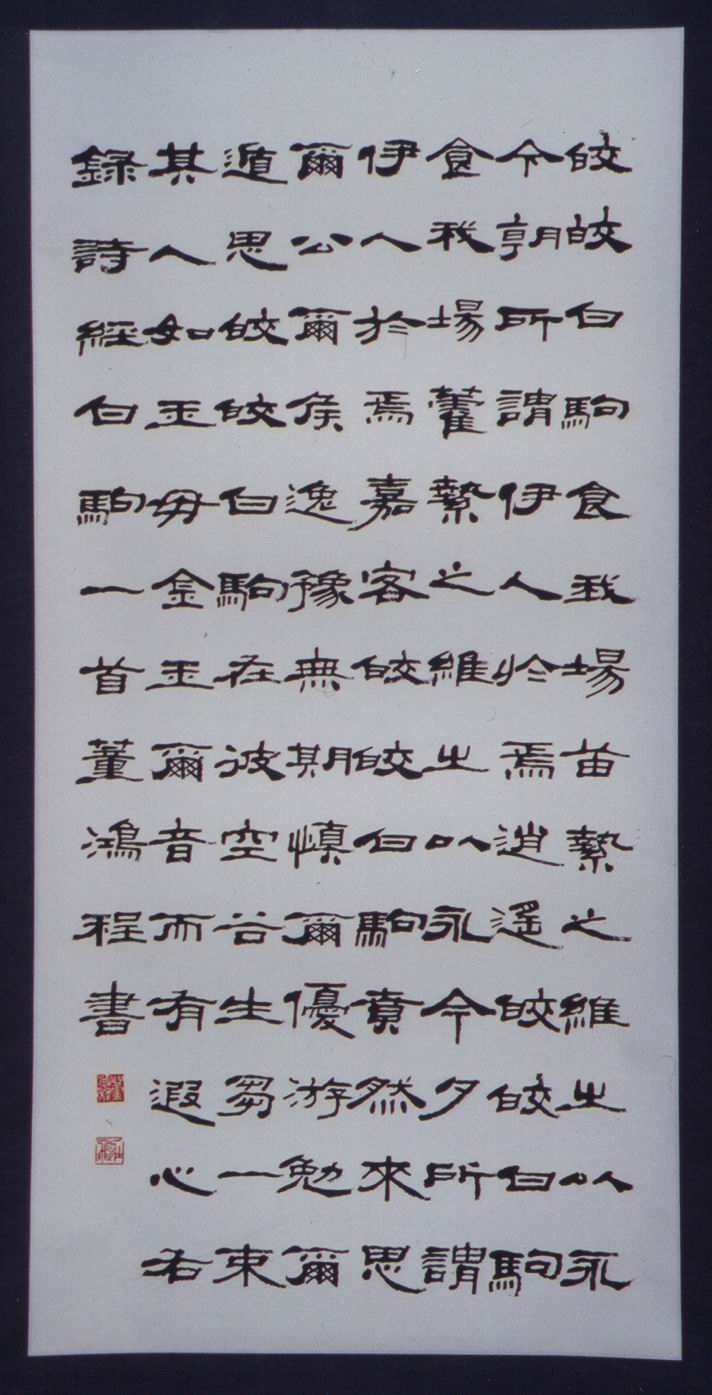 皎皎白駒食我場苗縶之維之以永
今朝所謂伊人於焉逍遙皎皎白駒
食我場藿縶之維之以永今夕所謂
伊人於焉嘉客皎皎白駒賁然來思
爾公爾侯逸豫無期慎爾優游勉爾
遁思皎皎白駒在彼空谷生芻一束
其人如玉毋金玉爾音而有遐心右
錄詩經白駒一首董鴻程書